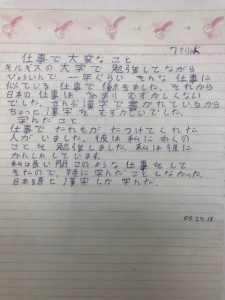 仕事で大変なこと
キルギスの大学で勉強してながら
びょういんで一年ぐらい そんな仕事に
似ている 仕事で働きました。それから
日本の仕事は あまり むずかしくない
でした。ぜんぶ漢字で書かれているから
ちょっと漢字を むずかしいでした。
学んだこと
仕事で だれもが たつけてくれた
人が いました。彼は 私に
ことを 勉強しました。私は彼に
かんしゃしています。
私は長い間このような仕事をして
きたので、特に学んだことしなかった。
日本語と漢字しか学んだ。
05.23.18